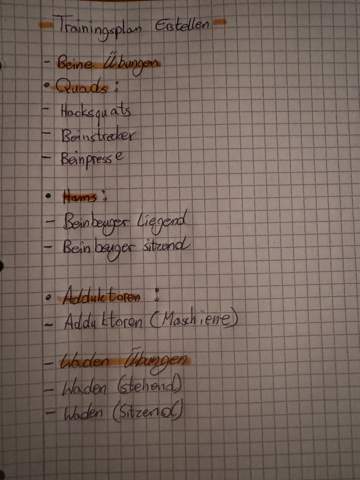 - Trainingsplan Erstellen -
- Beine Übungen
• Quads:
- Hacksquats
- Beinstrecker
- Beinpresse
• Hams:
- Beinbeuger Liegend
- Beinbeuger sitzend
• Adduktoren:
- Adduktoren (Maschiene)
- Waden Übungen
- Waden (stehend)
- Waden (Sitzend)